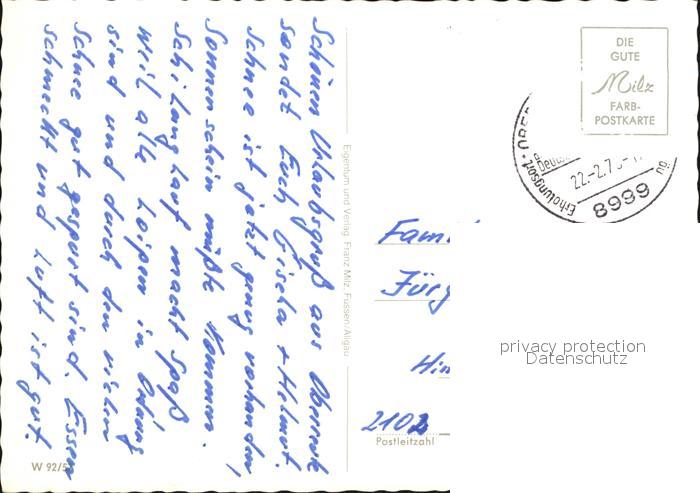 Schönen Urlaubsgruß aus Oberreute
sendet Euch Gisela + Helmut.
Schnee ist jetzt genug vorhanden,
Sonnenschein müßte kommen.
Schilanglauf macht Spaß
weil alle Loipen in Ordnung
sind und durch den vielen
Schnee gut gespurt sind. Essen
schmeckt und Luft ist gut.
W 92/5
Eigentum und Verlag Franz Milz, Füssen/Allgäu
DIE
GUTE
Milz
FARB-
POSTKARTE
Erholungsort
22.-2.7
8999
Fami
Jürg
Hin
2102
Postleitzahl
privacy protection
Datenschutz